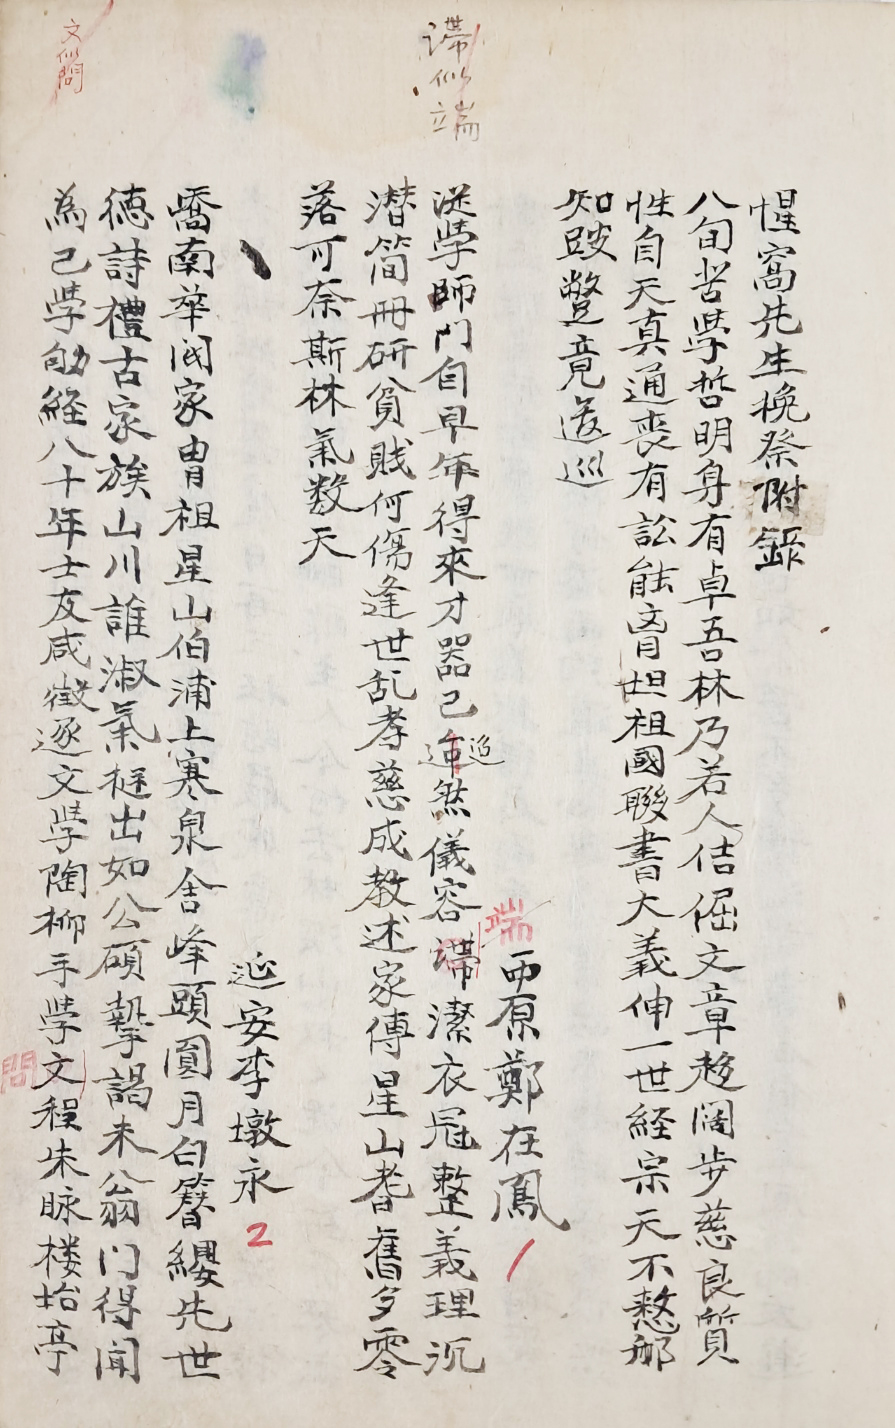 文似問
滯似端
惺窩先生挽祭附錄
八旬苦學哲明身有卓吾林乃若人佶倔文章趍濶步慈良質
性自天真通喪有訟能齎坦祖國聯書大義伸一世経宗天不憗郍
知跛躄竟逡巡
端 西原鄭在鳳 1
従學師門自早年得來才器已迨迢然儀容滯潔衣冠整義理沉
潛簡冊研貧賎何傷逢世乱孝慈成教述家傳星山耆舊多零
落可奈斯林氣数天
延安李墩永 2
喬南華閥家冑祖星山伯浦上寒泉舎峰頭圓月白簪纓先世
徳詩禮古家族山川誰淑氣挺出如公碩摯謁未翁門得聞
為己學劬経八十年士友咸徵逐文學陶柳手學文程朱眿楼坮亭
問